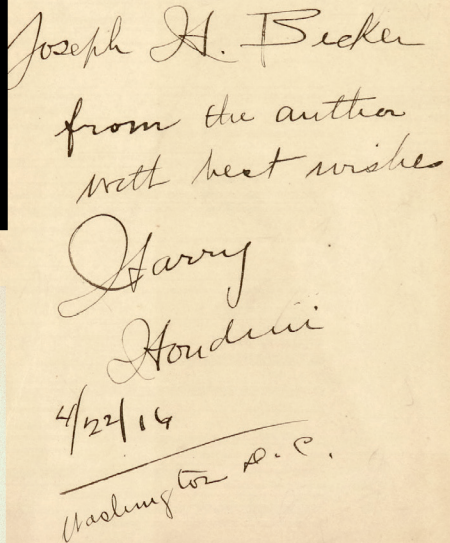 Joseph H. Becker
from the author
with best wishes
Harry
Houdini
4/22/16
Washington D.C.